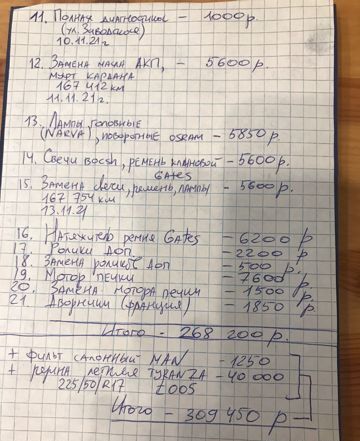 11. Полная диагностика - 1000 р.
(ул. Заводская)
10.11.21 г.
12. Замена масла АКП, - 5600 р.
муфт кардана
167 412 км
11.11.21 г.
13. Лампы головные
(NARVA), поворотные OSRAM - 5850 р.
14. Свечи BOCSH, ремень клиновой - 5600 р.
GATES
15. Замена свечи, ремень, лампы - 5600 р.
167 754 км
13.11.21
16. Натяжитель ремня Gates - 6200 р
17. Ролики доп. - 2200 р
18. Замена роликов доп - 500 р.
19. Мотор печки - 7600 р
20. Замена мотора печки - 1500 р
21. Дворники (Франция) - 1850 р
Итого - 268 200 р.
+ фильт салонный MAN - 1250
+ резина летняя TYRANZA - 40 000
225/50/R17 T005
Итого - 309 450 р